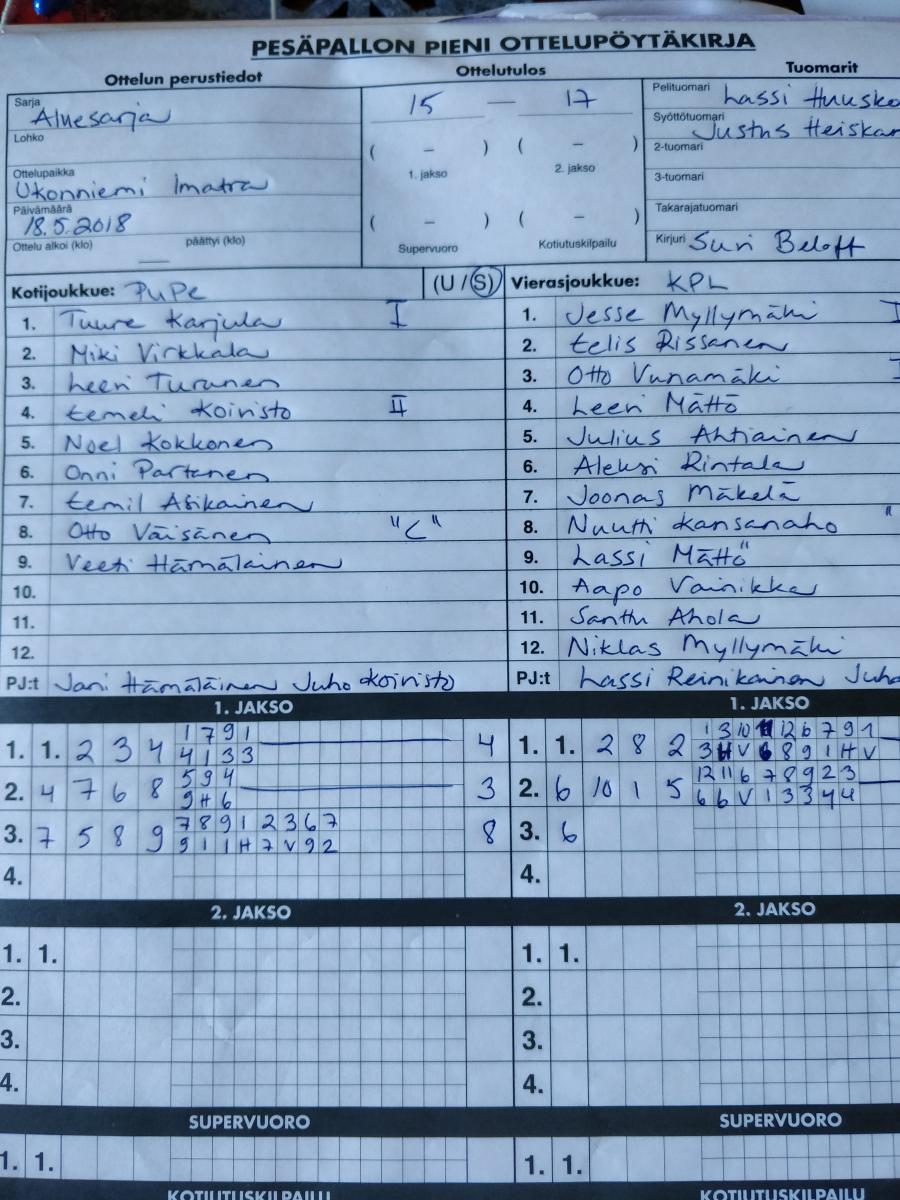 PESÄPALLON PIENI OTTELUPÖYTÄKIRJA
Ottelun perustiedot
Ottelutulos
Tuomarit
Sarja
Aluesarja
Lohko
Ottelupaikka
Ukonniemi Imatra
Päivämäärä
18.5.2018
Ottelu alkoi (klo) päättyi (klo)
15 — 17
( – ) ( – )
1. jakso 2. jakso
( – ) ( – )
Supervuoro Kotiutuskilpailu
Pelituomari Lassi
Syöttötuomari Justus
2-tuomari
3-tuomari
Takarajatuomari
Kirjuri Suri Beloff
Kotijoukkue: PuPe (U / S)
1. Tuure Karjula I
2. Miki Virkkala
3. Leevi Turunen
4. Eemeli Koivisto II
5. Noel Kokkonen
6. Onni Partanen
7. Eemil Asikainen
8. Otto Väisänen "C"
9. Veeti Hämäläinen
10.
11.
12.
PJ:t Jani Hämäläinen Juho Koivisto
Vierasjoukkue: KPL
1. Jesse Myllymäki I
2. Eelis Rissanen
3. Otto Vunamäki I
4. Leevi Mättö
5. Julius Ahtiainen
6. Aleksi Rintala
7. Joonas Mäkelä
8. Nuutti Kansanaho "
9. Lassi Mättö
10. Aapo Vainikka
11. Santtu Ahola
12. Niklas Myllymäki
PJ:t Lassi Reinikainen Juha
1. JAKSO
1 7 9 1
1. 1. 2 3 4 4 1 3 3 4
5 9 4
2. 4 7 6 8 9 H 6 3
7 8 9 1 2 3 6 7
3. 7 5 8 9 9 1 1 H 7 V 9 2 8
4.
1. JAKSO
1 3 10 11 12 6 7 9 1
1. 1. 2 8 2 3 H V 6 8 9 1 H V
12 11 6 7 8 9 2 3
2. 6 10 1 5 6 6 V 1 3 3 4 4
3. 6
4.
2. JAKSO
1. 1.
2.
3.
4.
2. JAKSO
1. 1.
2.
3.
4.
SUPERVUORO
1. 1.
SUPERVUORO
1. 1.
KOTIUTUSKILPAILU
KOTIUTUSKILPAILU